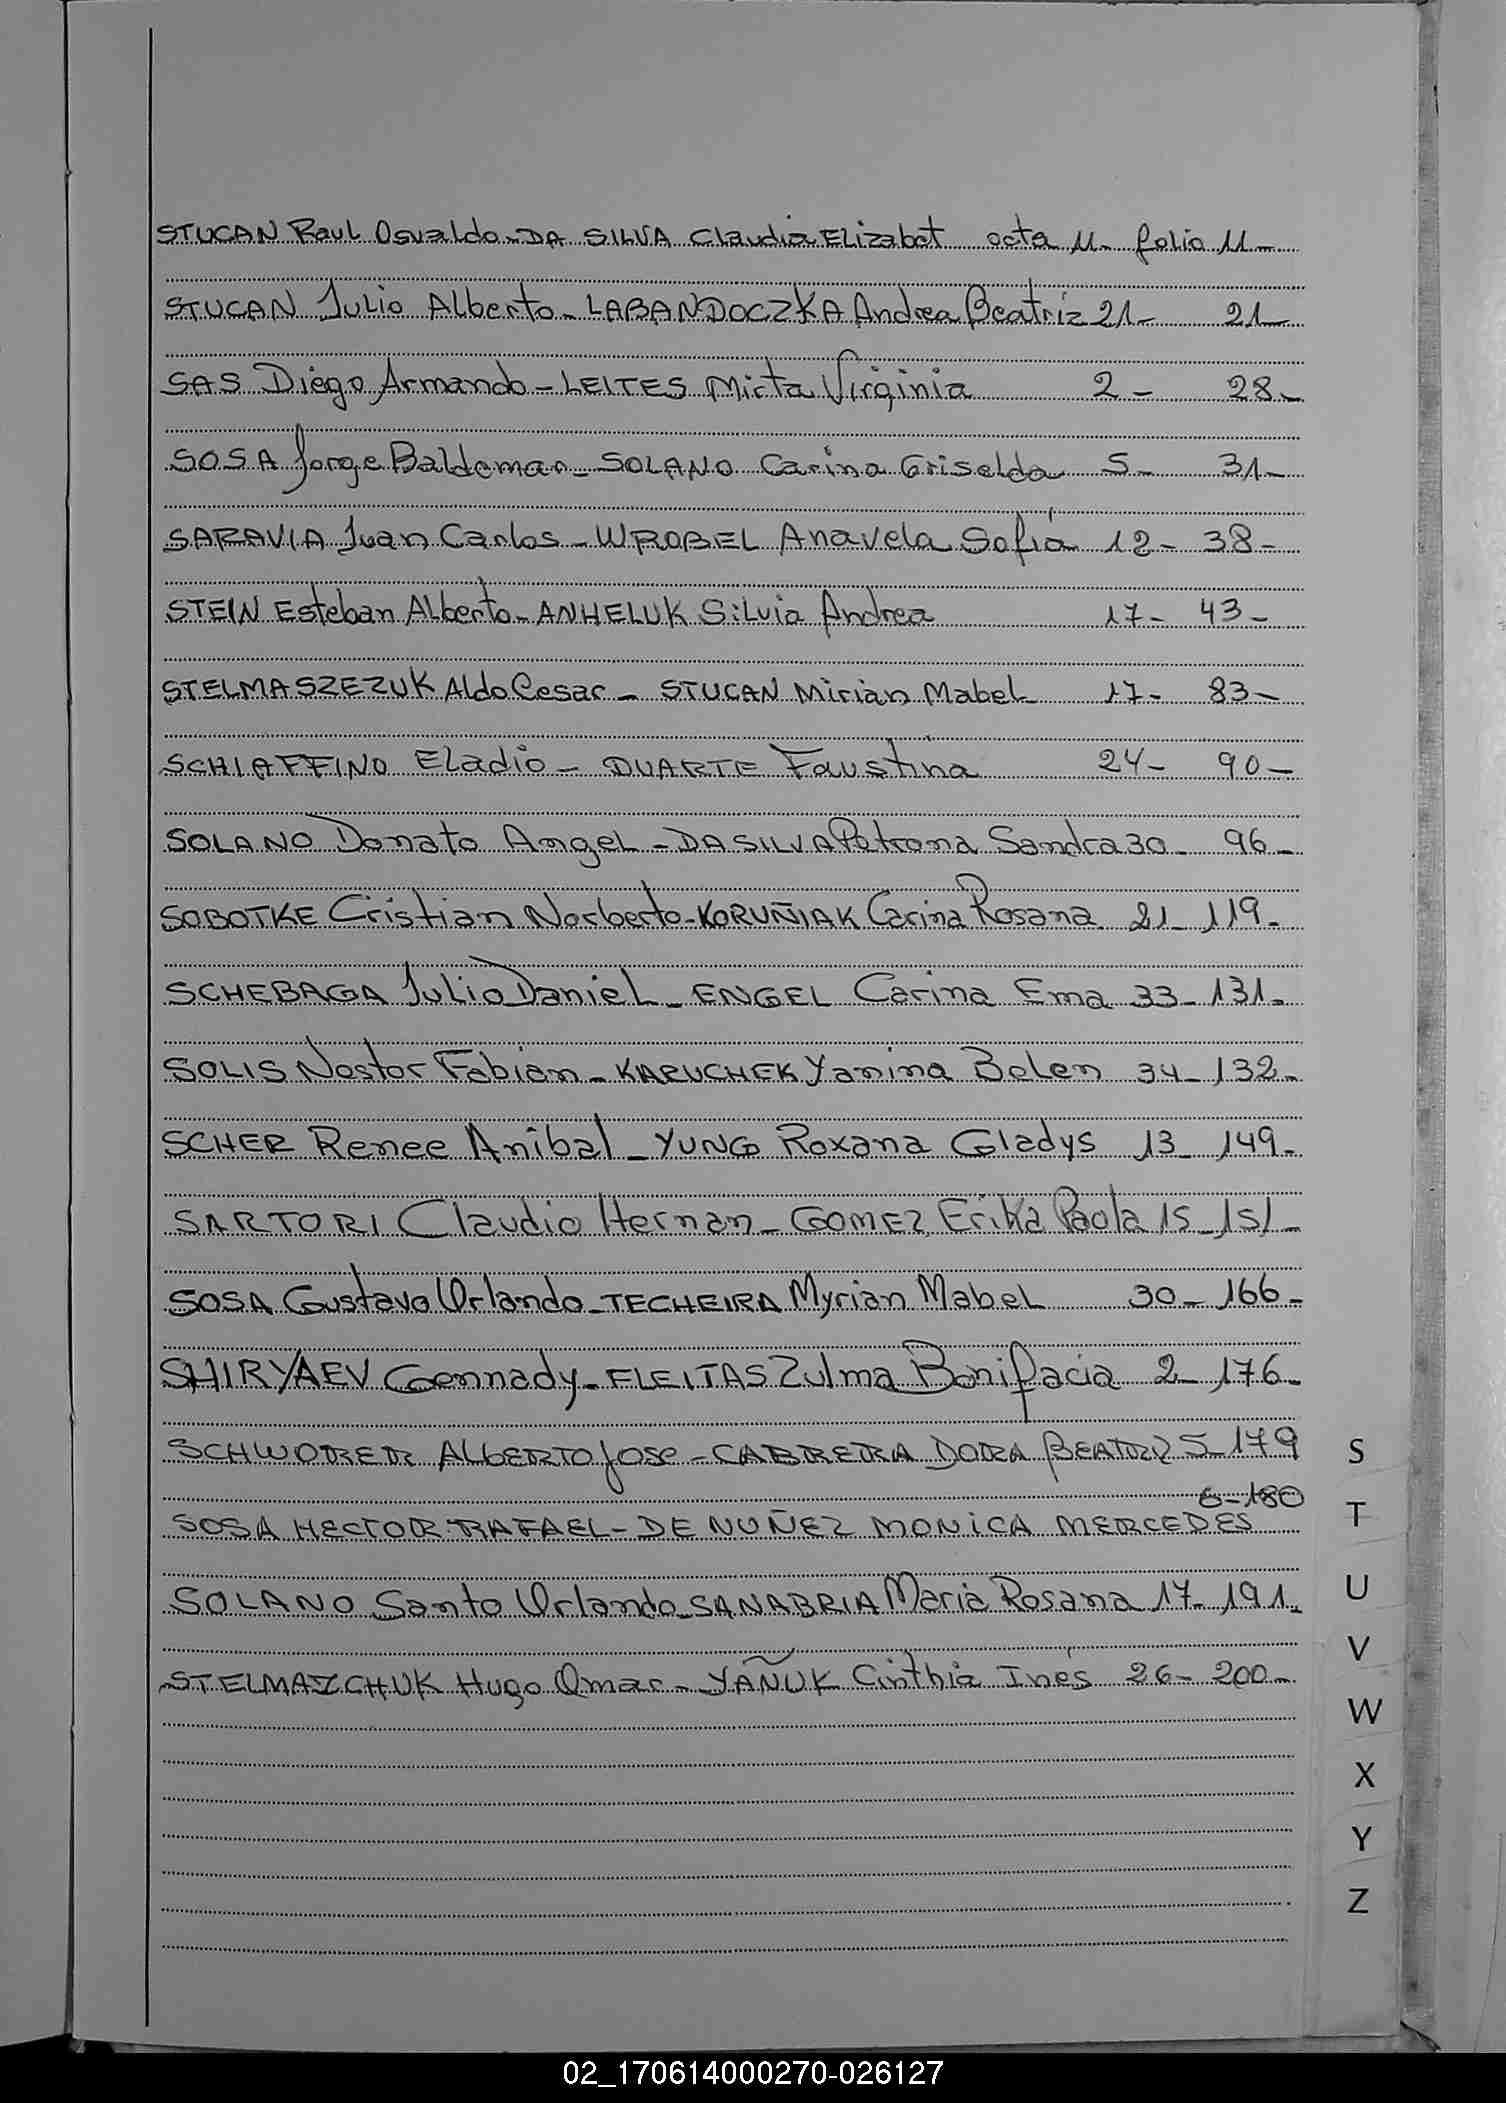 STUCAN Raul Osvaldo-DA SILVA Claudia Elizabet acta 11- folio 11-
STUCAN Julio Alberto-LABANDOCZKA Andrea Beatriz 21- 21-
SAS Diego Armando-LEITES Mirta Virginia 2- 28-
SOSA Jorge Baldomar-SOLANO Carina Griselda 5- 31-
SARAVIA Juan Carlos-WROBEL Anavela Sofia 12- 38-
STEIN Esteban Alberto-ANHELUK Silvia Andrea 17- 43-
STELMASZEZUK Aldo Cesar- STUCAN Mirian Mabel 17- 83-
SCHIAFFINO Eladio- DUARTE Faustina 24- 90-
SOLANO Donato Angel-DA SILVA Petrona Sandra 30- 96-
SOBOTKE Cristian Norberto-KORUÑIAK Carina Rosana 21-119-
SCHEBAGA Julio Daniel-ENGEL Carina Ema 33-131-
SOLIS Nestor Fabian-KARUCHEK Yanina Belen 34-132-
SCHER Renee Anibal-YUNG Roxana Gladys 13-149-
SARTORI Claudio Hernan-GOMEZ Erika Paola 15-151-
SOSA Gustavo Orlando-TECHEIRA Myrian Mabel 30-166-
SHIRYAEV Gennady-FLEITAS Zulma Bonifacia 2-176-
SCHWORER ALBERTO JOSE-CABRERA DORA BEATRIZ 5-179
6-180
SOSA HECTOR RAFAEL-DE NUÑEZ MONICA MERCEDES
SOLANO Santo Orlando-SANABRIA Maria Rosana 17-191-
STELMAZCHUK Hugo Omar-YAÑUK Cinthia Inés 26-200-
S
T
U
V
W
X
Y
Z
02_170614000270-026127